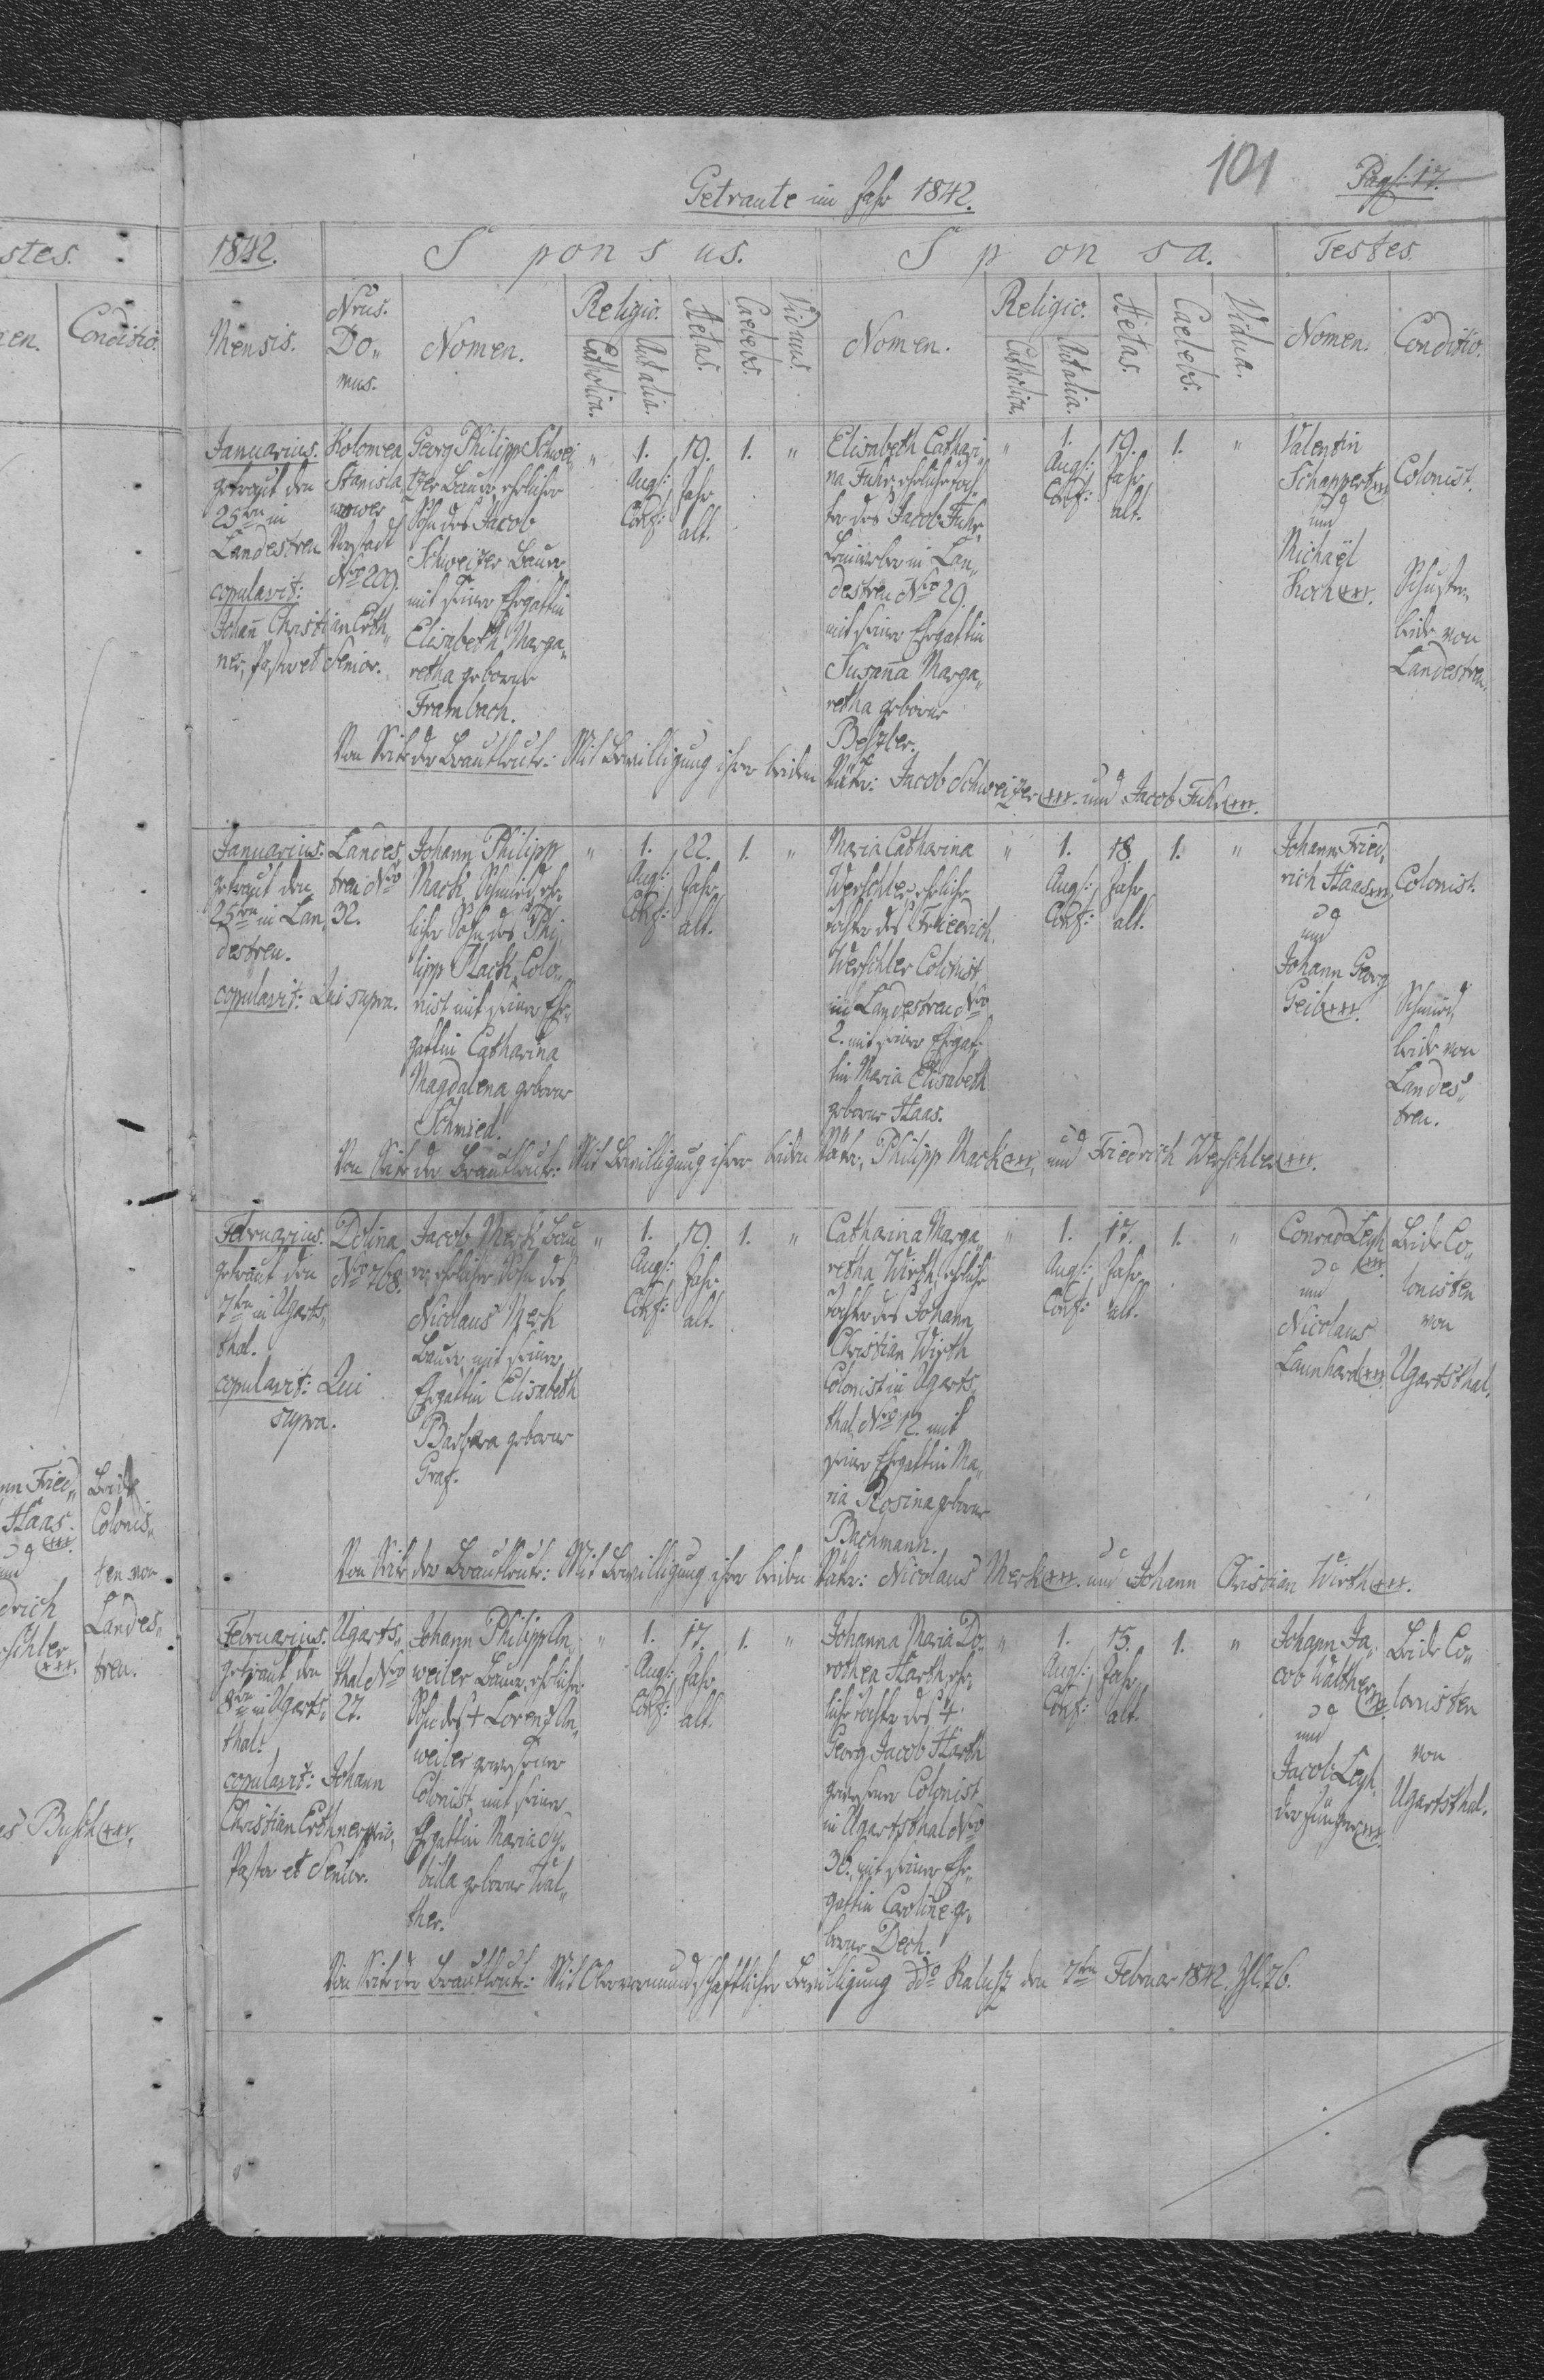 stes.
nen. Conditio.
nn Fried„ Beide
Haas. Colonis„
und ten von
drich Landes„
schler tren.
s Busch
101
Pag: 17.
Getraute im Jahr 1842.
1842. Sponsus. Sponsa. Testes.
Mensis. Nrus. Domus. Nomen. Religio. Catholica. Autalia. Aetas. Caelebs. Viduus. Nomen. Religio. Catholica. Autalia. Aetas. Caelebs. Vidua. Nomen. Conditio.
Januarius.
getraut den
25ten in
Landestreu
copulavit:
Johann Christian Erth„
ner, Pastor et Senior.
Kolomea
Stanisla
wower
Vorstadt
Nro 209.
Georg Philipp Schwei„
tzer Bauer, ehelicher
Sohn des Jacob
Schweizer Bauer,
mit seiner Ehegattin
Elisabeth Marga„
retha geborne
Frambach.
„ 1. 19. 1. „
Augs: Jahr
Conf: alt.
Elisabeth Cathari„
na Fuhr, eheliche Toch„
ter des Jacob Fuhr,
in Lan„
destreu Nro 29.
mit seiner Ehegattin
Susanna Marga„
retha geborne
Betzler.
„ 1. 19. 1. „
Augs: Jahr
Conf: alt.
Valentin
Schappert
und
Michaël
Koch +++.
Colonist.
Schuster,
beide von
Landestreu.
Von Seite der Brautleute: Mit Bewilligung ihrer beiden Väter: Jacob Schweizer +++. und Jacob Fuhr +++.
Januarius:
getraut den
25ten in Lan„
destreu.
copulavit: Qui supra.
Landes„
treu Nro
32.
Johann Philipp
Mack, Schmied, ehe„
licher Sohn des Phi„
lipp Mack, Colo„
nist mit seiner Ehe„
gattin Catharina
Magdalena geborne
Schmied.
„ 1. 22. 1. „
Augs: Jahr
Conf: alt.
Maria Catharina
Werschler, eheliche
Tochter des Friedrich
Werschler Colonist
in Landestreu Nro
2. mit seiner Ehegat„
tin Maria Elisabeth
geborne Haas.
„ 1. 18. 1. „
Augs: Jahr
Conf: alt.
Johann Fried„
rich Haas
und
Johann Georg
Geib +++.
Colonist.
Schmied,
beide von
Landes„
treu.
Von Seite der Brautleute: Mit Bewilligung ihrer beiden Väter, Philipp Mack +++, und Friedrich Werschler +++.
Februarius.
getraut den
7ten in Ugarts„
thal.
copulavit: Qui
supra.
Dolina
Nro 768.
Jacob Merk Bau„
er, ehelicher Sohn des
Nicolaus Merk
Bauer, mit seiner
Ehegattin Elisabeth
Barbara geborne
Graf.
„ 1. 19. 1. „
Augs: Jahr
Conf: alt.
Catharina Marga„
retha Wirth, eheliche
Tochter des Johann
Christian Wirth
Colonist in Ugarts„
thal Nro 12. mit
seiner Ehegattin Ma„
ria Rosina geborne
Bachmann.
„ 1. 17. 1. „
Augs: Jahr
Conf: alt.
Conrad Leyh
+++.
und
Nicolaus
Launhard +++.
Beide Co„
lonisten
von
Ugartsthal.
Von Seite der Brautleute: Mit Bewilligung ihrer beiden Väter: Nicolaus Merk +++. und Johann Christian Wirth +++.
Februarius.
getraut den
8ten in Ugarts„
thal:
copulavit: Johann
Christian Erthner
Pastor et Senior.
Ugarts„
thal Nro
27.
Johann Philipp An„
weiler Bauer, ehelicher
Sohn des + Lorenz An„
weiler gewesener
Colonist mit seiner
Ehegattin Maria Sy„
billa geborne Wal„
ther.
„ 1. 17. 1. „
Augs: Jahr
Conf: alt.
Johanna Maria Do„
rothea Harth ehe„
liche Tochter des +
Georg Jacob Harth
gewesener Colonist
in Ugartsthal Nro
30. mit seiner Ehe„
gattin Caroline ge„
borne Dech.
„ 1. 15. 1. „
Augs: Jahr
Conf: alt.
Johann Ja„
cob Walther
und
Jacob Leyh
der jüngere +++.
Beide Co„
lonisten
von
Ugartsthal.
Von Seite der Brautleute: Mit Obervormundschaftlicher Bewilligung ddo Kalusz den 7ten Februar 1842. Zhl. 76.